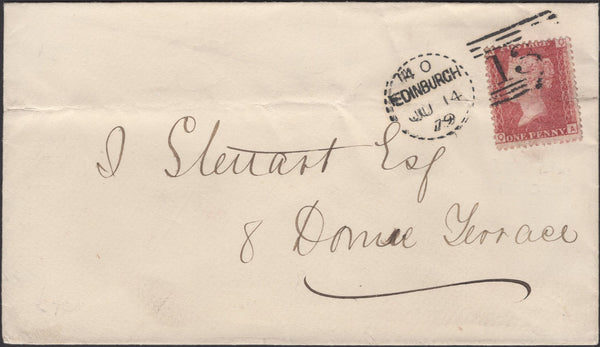 40
EDINBURGH
JU 14
79
13
ONE PENNY
J Stewart Esq
8 Terrace